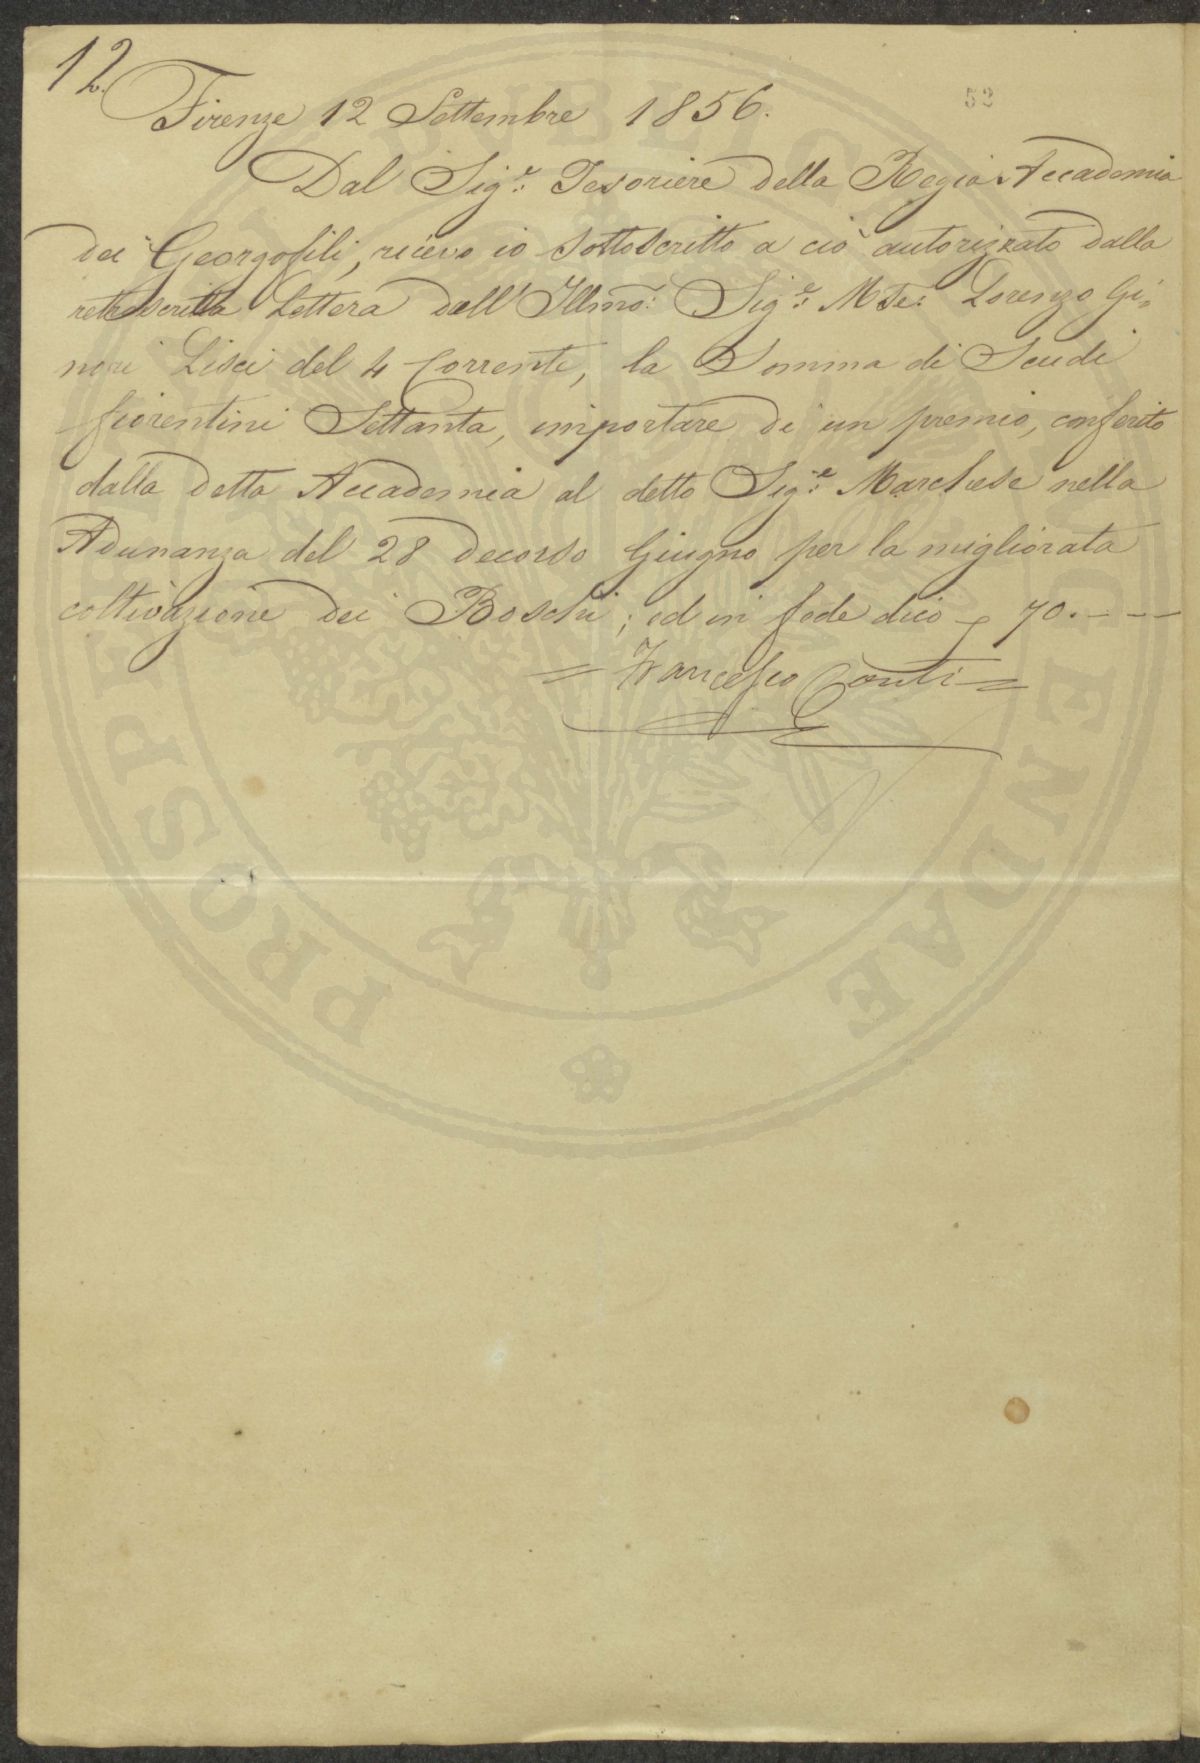 12.
52
Firenze 12 Settembre 1856.
Dal Sig.r: Tesoriere della Regia Accademia
dei Georgofili, ricevo io sottoscritto a ciò autorizzato dalla
retroscritta Lettera dell'Illmo: Sig.r: M.se: Lorenzo Gi=
nori Lisci del 4 Corrente, la Somma di Scudi
fiorentini Settanta, importare di un premio, conferito
dalla detta Accademia al detto Sig.e: Marchese nella
Adunanza del 28 decorso Giugno per la migliorata
coltivazione dei Boschi; ed in fede dico 70.---
= Francesco Conti =
PROSPERITATI PUBLICAE AUGENDAE